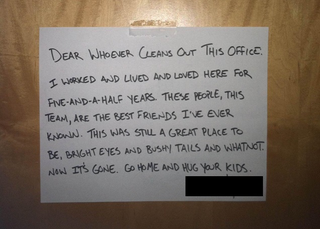 DEAR WHOEVER CLEANS OUT THIS OFFICE,
I WORKED AND LIVED AND LOVED HERE FOR
FIVE-AND-A-HALF YEARS. THESE PEOPLE, THIS
TEAM, ARE THE BEST FRIENDS I'VE EVER
KNOWN. THIS WAS STILL A GREAT PLACE TO
BE, BRIGHT EYES AND BUSHY TAILS AND WHATNOT.
NOW IT'S GONE. GO HOME AND HUG YOUR KIDS.